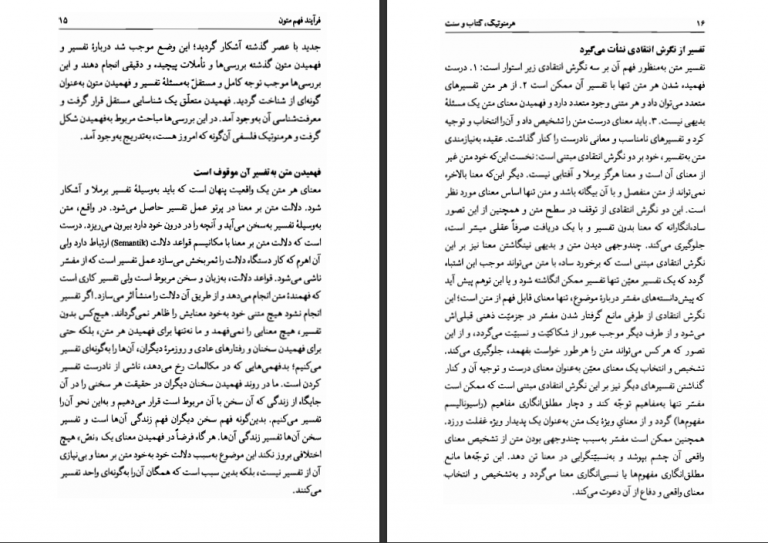 فرآیند فهم متون ۱۵
جدید با عصر گذشته آشکار گردید؛ این وضع موجب شد دربارهٔ تفسیر و
فهمیدن متون گذشته بررسی‌ها و تأملات پیچیده و دقیقی انجام دهند و این
بررسی‌ها موجب توجه کامل و مستقل به‌مسئلهٔ تفسیر و فهمیدن متون به‌عنوان
گونه‌ای از شناخت گردید. فهمیدن متعلّق یک شناسایی مستقل قرار گرفت و
معرفت‌شناسی آن به‌وجود آمد. در این بررسی‌ها مباحث مربوط به‌فهمیدن شکل
گرفت و هرمنوتیک فلسفی آن‌گونه که امروز هست، به‌تدریج به‌وجود آمد.
فهمیدن متن به‌تفسیر آن موقوف است
معنای هر متن یک واقعیت پنهان است که باید به‌وسیلهٔ تفسیر برملا و آشکار
شود. دلالت متن بر معنا در پرتو عمل تفسیر حاصل می‌شود. در واقع، متن
به‌وسیلهٔ تفسیر به‌سخن می‌آید و آنچه را در درون خود دارد بیرون می‌ریزد. درست
است که دلالت متن بر معنا با مکانیسم قواعد دلالت (Semantik) ارتباط دارد ولی
آن اهرم که کار دستگاه دلالت را ثمربخش می‌سازد عمل تفسیر است که از مفسّر
ناشی می‌شود. قواعد دلالت، به‌زبان و سخن مربوط است ولی تفسیر کاری است
که فهمندهٔ متن انجام می‌دهد و از طریق آن دلالت را منشأ اثر می‌سازد. اگر تفسیر
انجام نشود هیچ متنی خود به‌خود معنایش را ظاهر نمی‌گرداند. هیچ‌کس بدون
تفسیر، هیچ معنایی را نمی‌فهمد و ما نه‌تنها برای فهمیدن هر متن، بلکه حتی
برای فهمیدن سخنان و رفتارهای عادی و روزمرهٔ دیگران، آن‌ها را به‌گونه‌ای تفسیر
می‌کنیم؛ بدفهمی‌هایی که در مکالمات رخ می‌دهد، ناشی از نادرست تفسیر
کردن است. ما در روند فهمیدن سخنان دیگران در حقیقت هر سخنی را در آن
جایگاه از زندگی که آن سخن با آن مربوط است قرار می‌دهیم و به‌این نحو آن‌را
تفسیر می‌کنیم. بدین‌گونه فهم سخن دیگران فهم زندگی آن‌ها است و تفسیر
سخن آن‌ها تفسیر زندگی آن‌ها. هر گاه فرضاً در فهمیدن معنای یک «نص» هیچ
اختلافی بروز نکند این موضوع به‌سبب دلالت خود به‌خود متن بر معنا و بی‌نیازی
آن از تفسیر نیست، بلکه بدین سبب است که همگان آن‌را به‌گونه‌ای واحد تفسیر
می‌کنند.
۱۶ هرمنوتیک، کتاب و سنت
تفسیر از نگرش انتقادی نشأت می‌گیرد
تفسیر متن به‌منظور فهم آن بر سه نگرش انتقادی زیر استوار است: ۱. درست
فهمیده شدن هر متن تنها با تفسیر آن ممکن است ۲. از هر متن تفسیرهای
متعدد می‌توان داد و هر متنی وجوه متعدد دارد و فهمیدن معنای متن یک مسئلهٔ
بدیهی نیست. ۳. باید معنای درست متن را تشخیص داد و آن‌را انتخاب و توجیه
کرد و تفسیرهای نامناسب و معانی نادرست را کنار گذاشت. عقیده به‌نیازمندی
متن به‌تفسیر، خود بر دو نگرش انتقادی مبتنی است: نخست این‌که خود متن غیر
از معنای آن است و معنا هرگز برملا و آفتابی نیست. دیگر این‌که معنا بالاخره
نمی‌تواند از متن منفصل و با آن بیگانه باشد و متن تنها اساس معنای مورد نظر
است. این دو نگرش انتقادی از توقف در سطح متن و همچنین از این تصور
ساده‌انگارانه که معنا بدون تفسیر و با یک دریافت صرفاً عقلی میسّر است،
جلوگیری می‌کند. چندوجهی دیدن متن و بدیهی نینگاشتن معنا نیز بر این
نگرش انتقادی مبتنی است که برخورد ساده با متن می‌تواند موجب این اشتباه
گردد که یک تفسیر معیّن تنها تفسیر ممکن انگاشته شود و یا این توهم پیش آید
که پیش‌دانسته‌های مفسّر دربارهٔ موضوع، تنها معنای قابل فهم از متن است؛ این
نگرش انتقادی از طرفی مانع گرفتار شدن مفسّر در جزمیّت ذهنی قبلی‌اش
می‌شود و از طرف دیگر موجب عبور از شکاکیّت و نسبیّت می‌گردد، و از این
تصور که هر کس می‌تواند متن را هرطور خواست بفهمد، جلوگیری می‌کند.
تشخیص و انتخاب یک معنای معیّن به‌عنوان معنای درست و توجیه آن و کنار
گذاشتن تفسیرهای دیگر نیز بر این نگرش انتقادی مبتنی است که ممکن است
مفسّر تنها به‌مفاهیم توجّه کند و دچار مطلق‌انگاری مفاهیم (راسیونالیسم
مفهوم‌ها) گردد و از معنایِ ویژهٔ یک متن به‌عنوان یک پدیدار ویژه غفلت ورزد.
همچنین ممکن است مفسّر به‌سبب چندوجهی بودن متن از تشخیص معنای
واقعی آن چشم بپوشد و به‌نسبیّتگرایی در معنا تن دهد. این توجّه‌ها مانع
مطلق‌انگاری مفهوم‌ها یا نسبی‌انگاری معنا می‌گردد و به‌تشخیص و انتخاب
معنای واقعی و دفاع از آن دعوت می‌کند.